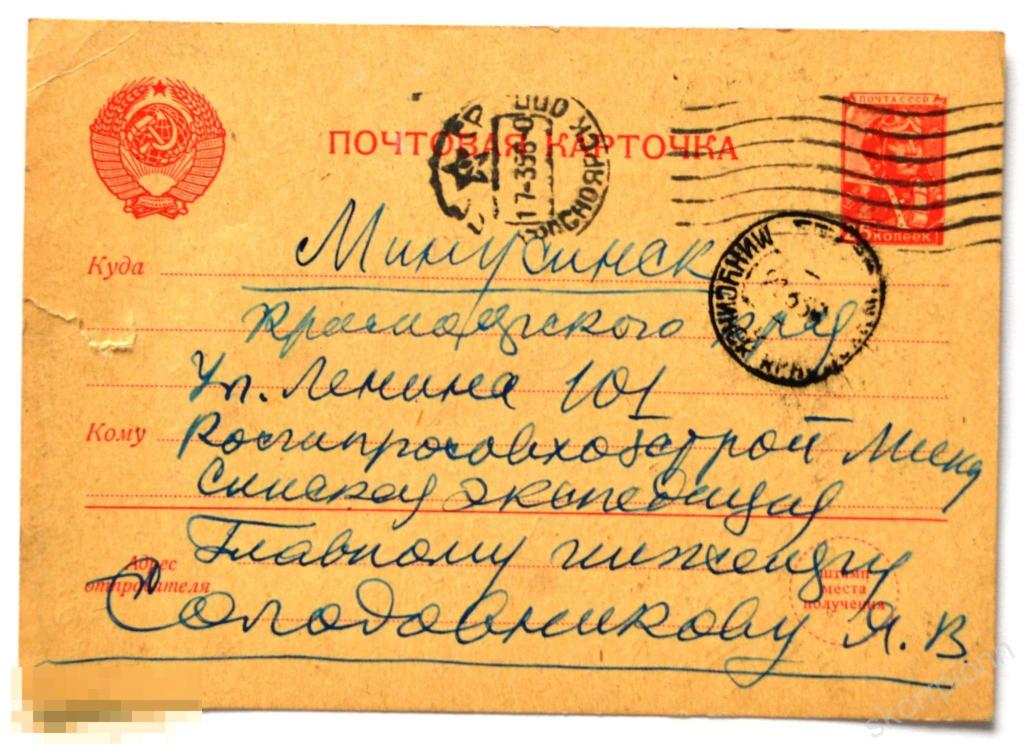 ПОЧТА СССР
ПОЧТОВАЯ КАРТОЧКА
КРАСНОЯРСК
17-3
25 копеек
МИНУСИНСК
Куда Минусинск
Красноярского края
Ул. Ленина 101
Кому Росгипросовхозстрой Мину
синская экспедиция
Главному инженеру
Адрес отправителя
Солодовникову Я. В.
Штамп
места
получения
skompjohn